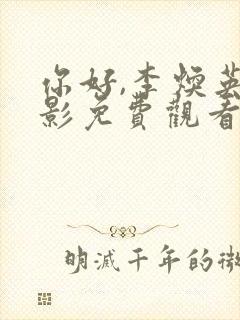 你好,李焕英
影免費觀看
明滅千年的微